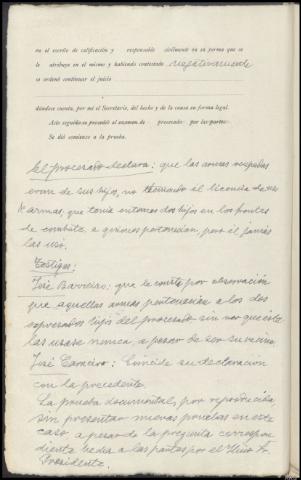 en el escrito de calificación y responsable civilmente en su forma que se
le atribuye en el mismo y habiendo contestado negativamente
se ordenó continuar el juicio
dándose cuenta, por mí el Secretario, del hecho y de la causa en forma legal.
Acto seguido se procedió el examen de procesado por las partes.
Se dió comienzo a la prueba.
El procesado declara: que las armas ocupadas
eran de sus hijos, no teniendo él licencia de uso
de armas, que tenía entonces dos hijos en los frentes
de combate a quienes pertenecían, pero él jamás
las usó.
Testigos:
José Barreiro: que le consta por observación
que aquellas armas pertenecían a los dos
expresados hijos del procesado sin que éste
las usase nunca, a pesar de ser su vecino.
José : Coincide su declaración
con la precedente.
La prueba documental, por reproducida,
sin presentar nuevas pruebas en este
caso a pesar de la pregunta correspon
diente hecha a las partes por el Iltmo Sr.
Presidente.